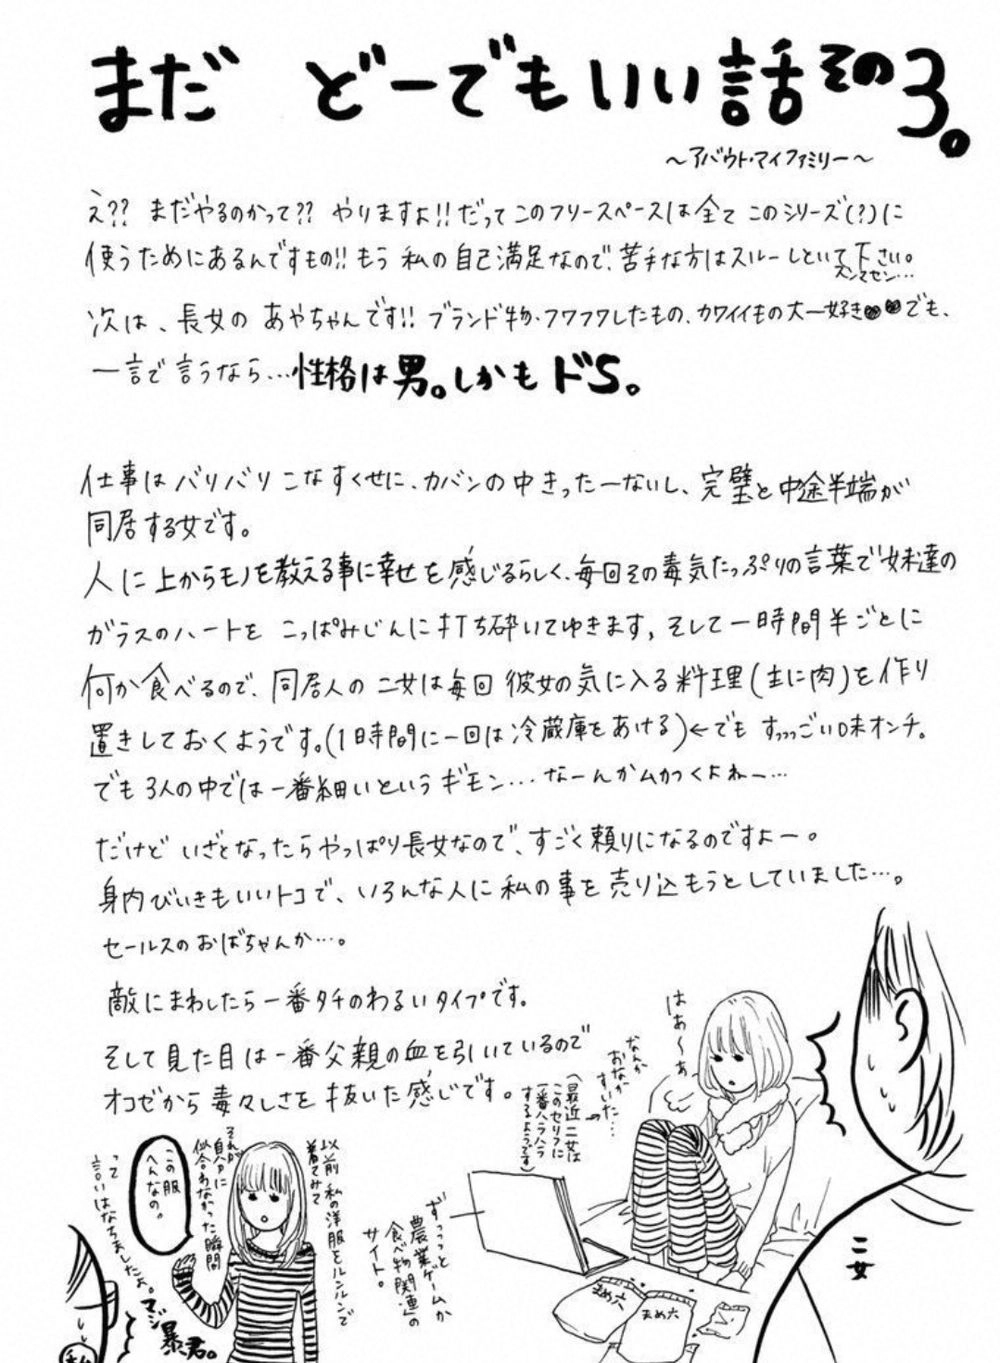 まだ どーでもいい話その3。
～アバウト・マイファミリー～
え?? まだやるのかって?? やりますよ!!だってこのフリースペースは全てこのシリーズ(?)に
使うためにあるんですもの!!もう私の自己満足なので、苦手な方はスルーしといて下さい。
スンマセン…
次は、長女の あやちゃんです!! ブランド物・フワフワしたもの、カワイイもの大一好き♥♥でも、
一言で言うなら…性格は男。しかもドS。
仕事はバリバリこなすくせに、カバンの中きったーないし、完璧と中途半端が
同居する女です。
人に上からモノを教える事に幸せを感じるらしく、毎回その毒気たっぷりの言葉で妹達の
ガラスのハートを こっぱみじんに打ち砕いてゆきます。そして一時間半ごとに
何か食べるので、同居人の二女は毎回 彼女の気に入る料理(主に肉)を作り
置きしておくようです。(1時間に一回は冷蔵庫をあける)←でも すっっっごい味オンチ。
でも3人の中では一番細いというギモン…なーんかムカつくよねー…
だけど いざとなったらやっぱり長女なので、すごく頼りになるのですよー。
身内びいきもいいトコで、いろんな人に私の事を売り込もうとしていました…。
セールスのおばちゃんか…。
敵にまわしたら一番タチのわるいタイプです。
そして見た目は一番父親の血を引いているので
オコゼから毒々しさを抜いた感じです。
はあ～ぁ
なんか
おなか
すいた…
(最近二女は
このセリフに
一番ハラハラ
するようです)
二女
ずっっっと
農業ゲームか
食べ物関連の
サイト。
まめ六
まめ六
以前 私の洋服をルンルンで
着てみて
それが
自分に
似合わなかった瞬間
この服
へんなの。
って
言いはなちましたよ。マジ
暴君。
私